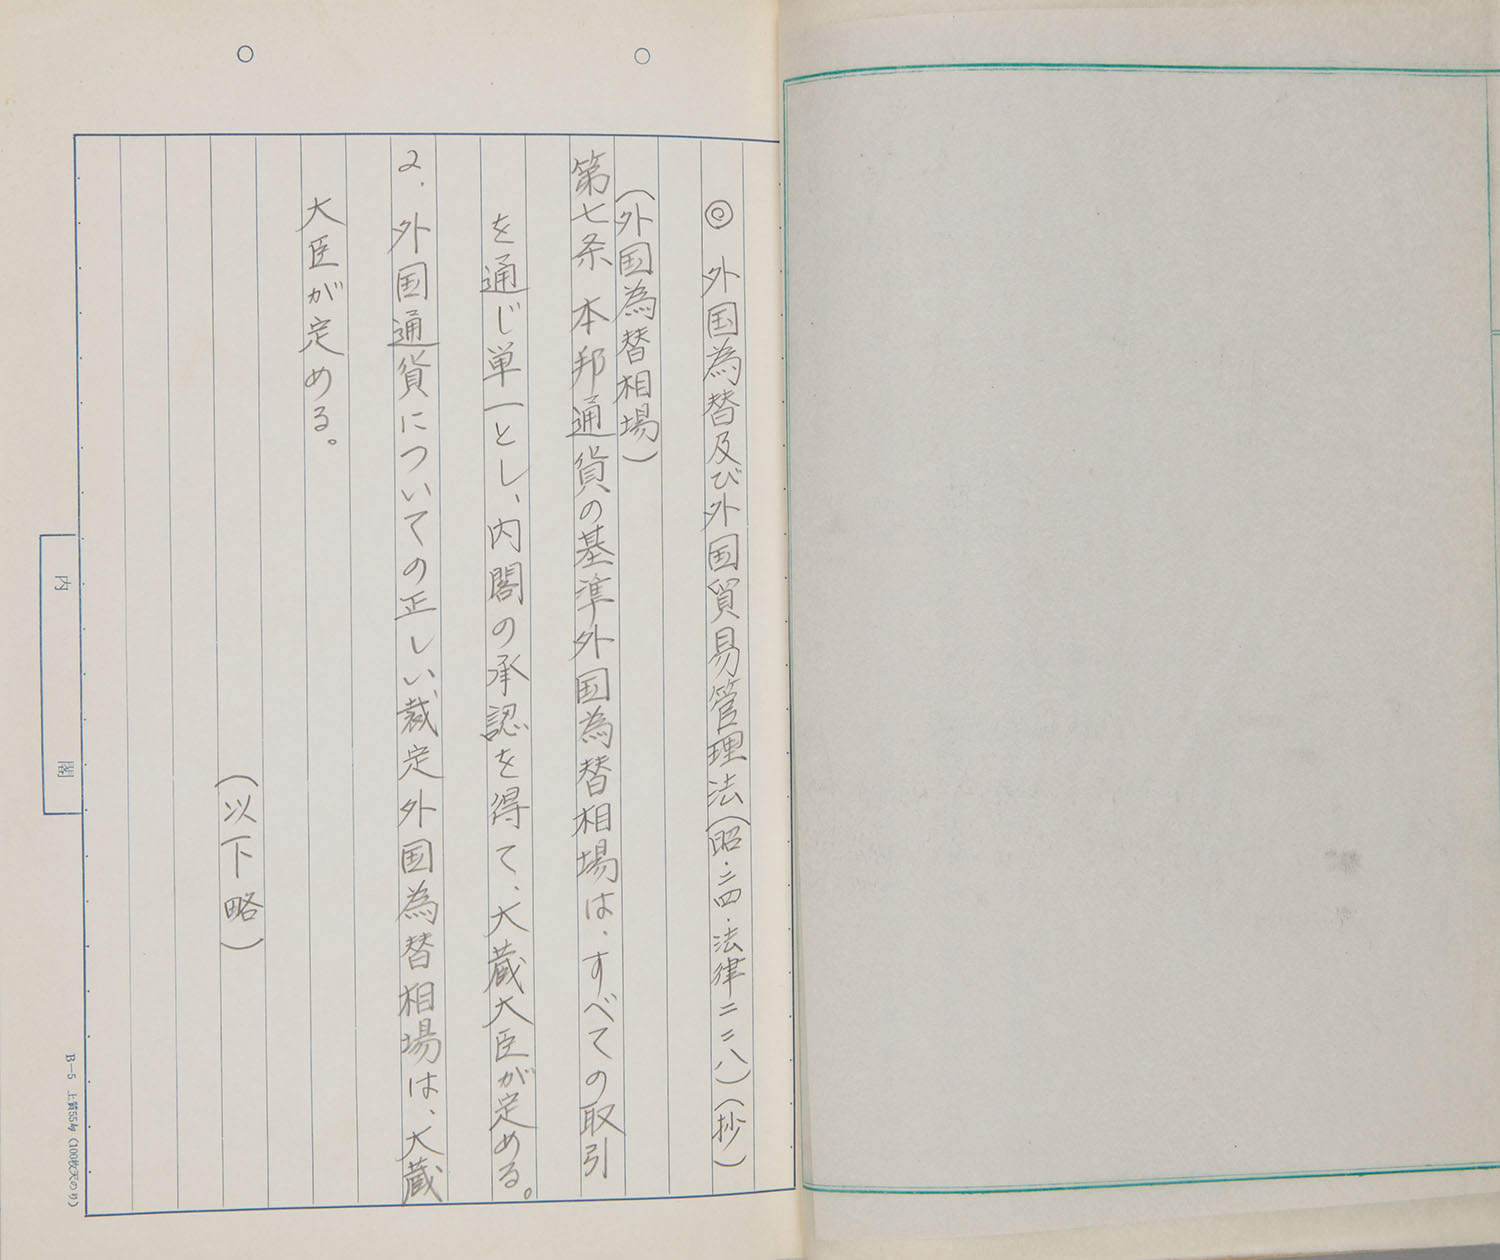 ◎ 外国為替及び外国貿易管理法(昭・二四・法律二二八)(抄)
(外国為替相場)
第七条 本邦通貨の基準外国為替相場は、すべての取引
を通じ単一とし、内閣の承認を得て、大蔵大臣が定める。
2. 外国通貨についての正しい裁定外国為替相場は、大蔵
大臣が定める。
(以下略)
内 閣
B-5 上質55kg (100枚天のり)